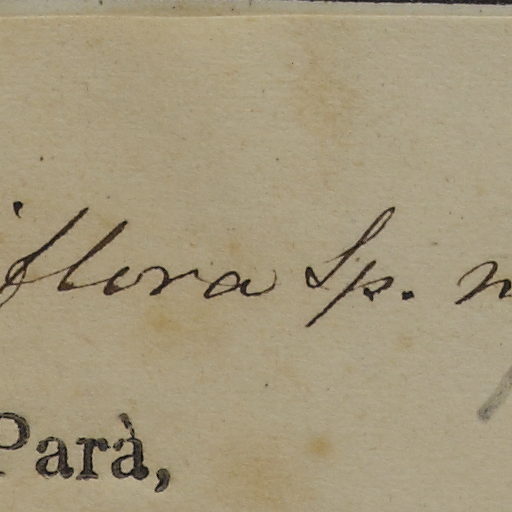 iflora Sp. n
Parà,